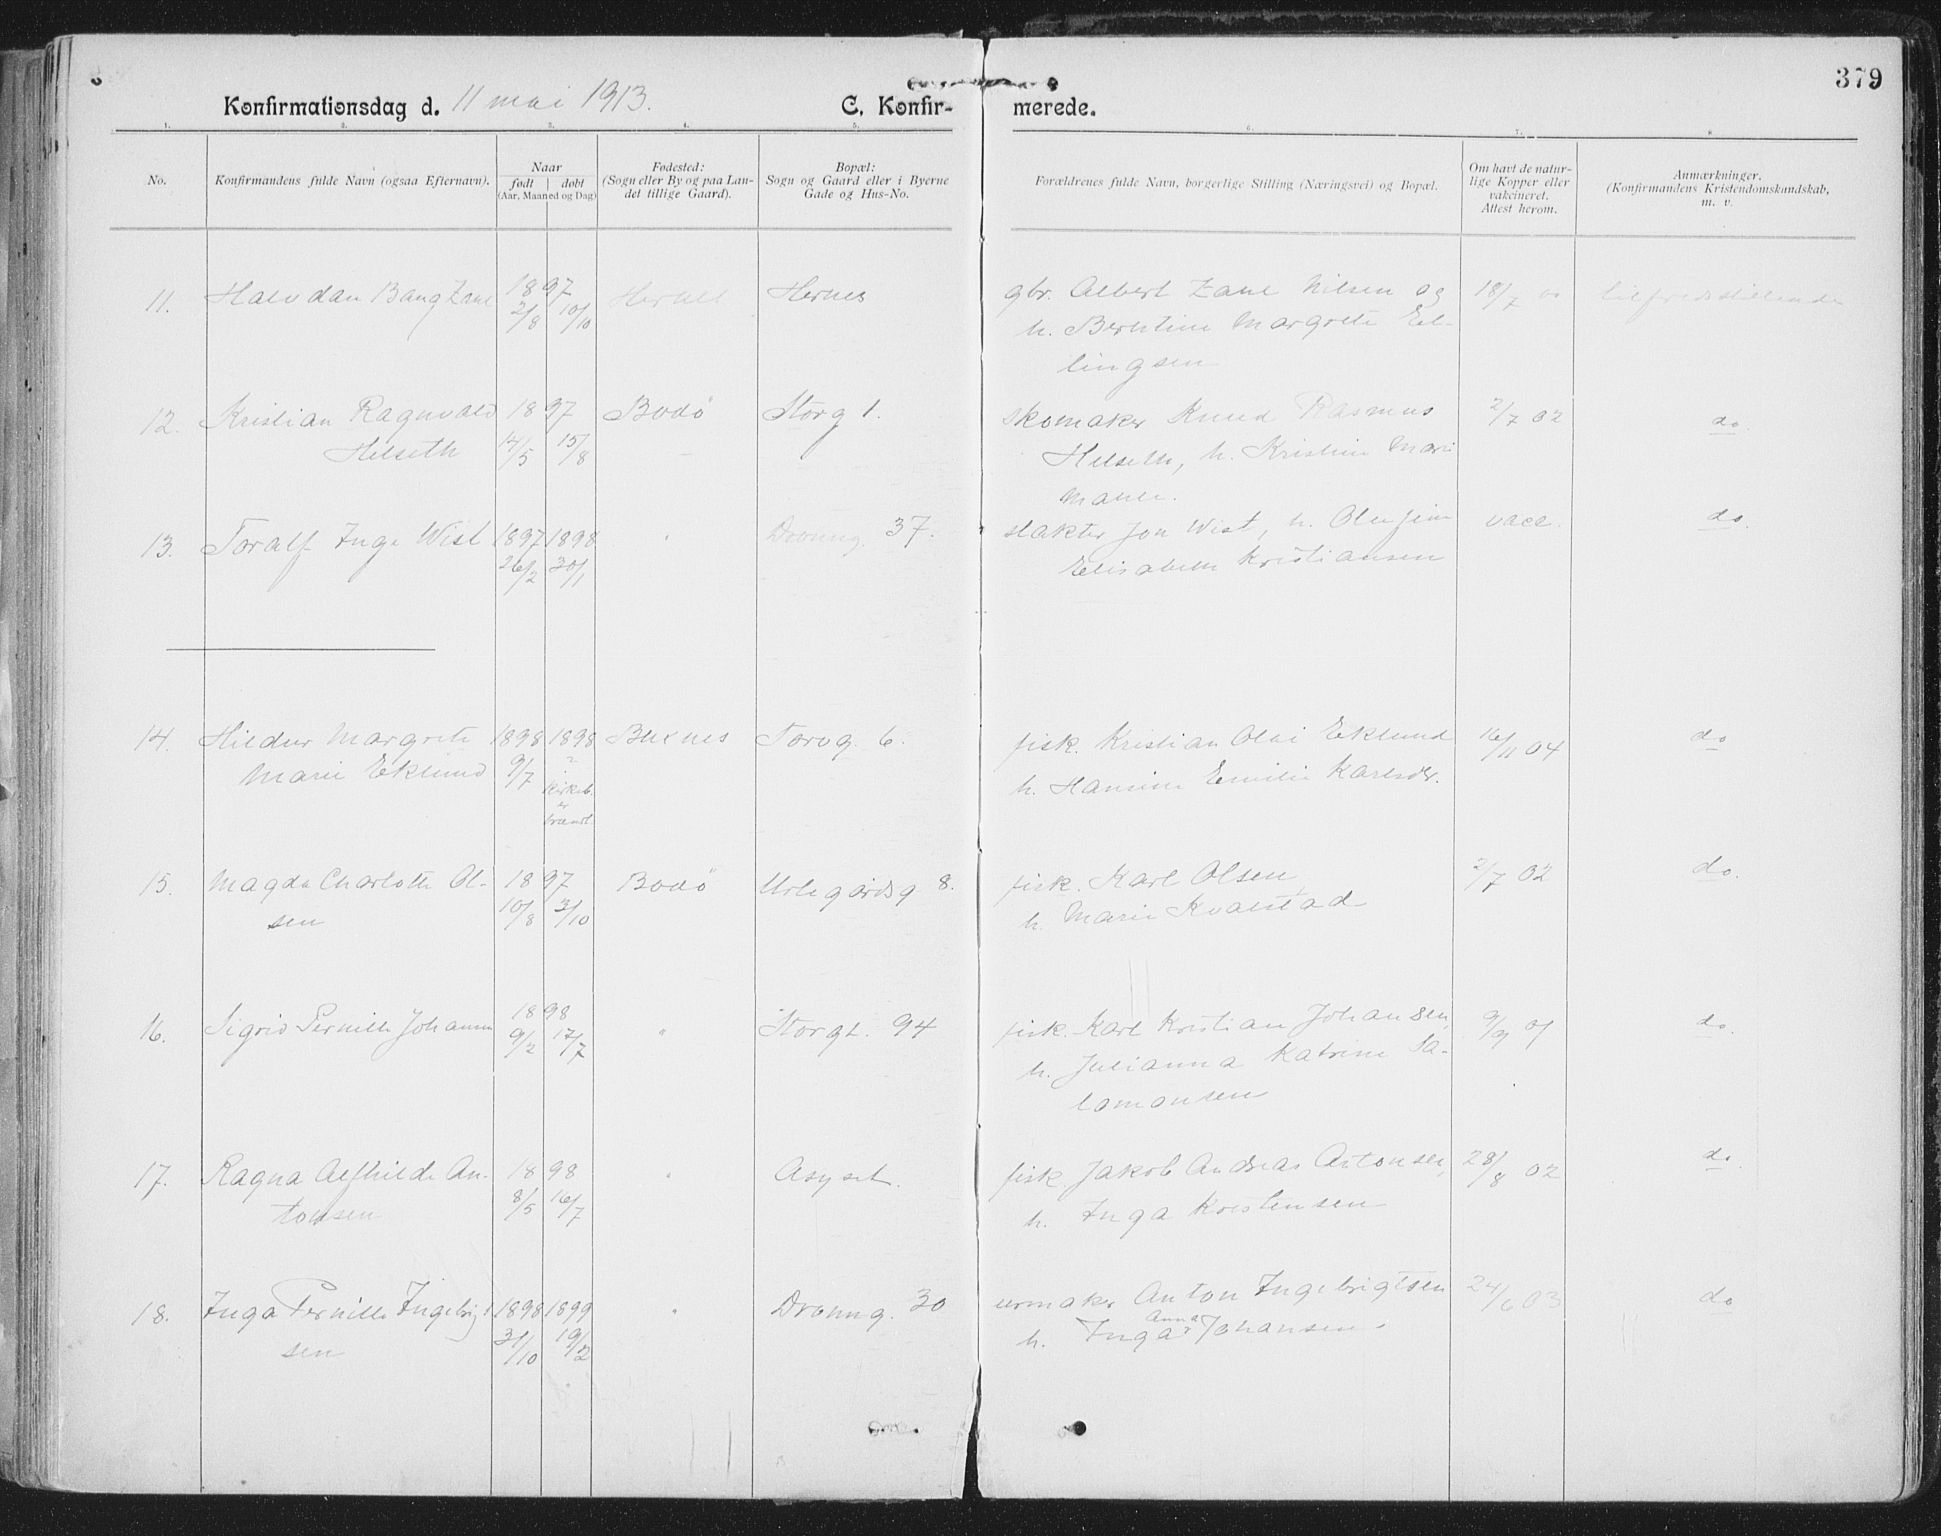 379
Konfirmationsdag d. 11 mai 1913.
C. Konfirmerede.
1. 2. 3. 4. 5. 6. 7. 8
No.
Konfirmandens fulde Navn (ogsaa Efternavn).
Naar
født | døbt
(Aar, Maaned og Dag)
Fødested:
(Sogn eller By og paa Lan-
det tillige Gaard).
Bopæl:
Sogn og Gaard eller i Byerne
Gade og Hus-No.
Forældrenes fulde Navn, borgerlige Stilling (Næringsvei) og Bopæl.
Om havt de natur-
lige Kopper eller
vakcineret.
Attest herom.
Anmærkninger.
(Konfirmandens Kristendomskundskab,
m. v.
11. Halvdan Bang Zanl 1897 Hernes gbr. Albert Zanl Nilsen og 18/7 tilfredsstillende
2/8 10/10 h. Berntine Margrete El-
lingsen
12. Kristian Ragnvald 1897 Bodö Storg 1. skomaker Knud Rasmus 2/7 02 do.
Helseth 14/5 15/8 Helseth, h. Kristine Marie
13. Toralf Inge Wist 1897 1898 " Dronng. 37. slakter Jon Wist, h. Olufine vacc. do.
26/2 30/1 Elisabeth Kristiansen
14. Hildur Margrete 1898 1898 Buxnes Torvg. 6. fisk. Kristian Olai Eklund 16/11 04 do
Marie Eklund 9/7 ? h. Hansine Emilie Karlsdr.
Kirkeb.
er
brændt.
15. Magda Charlotte Ol- 1897 Bodö Urtegårdsg 8. fisk. Karl Olsen 2/7 02 do.
sen 10/8 3/10 h. Marie Kvalstad
16. Sigrid Pernille Johansen 1898 " Storgt. 94 fisk. Karl Kristian Johansen, 9/9 01 do.
9/2 17/7 h. Julianna Katrine Sa-
lomonsen
17. Ragna Alfhilde An- 1898 " Asyset. fisk. Jakob Andreas Antonsen, 28/8 02 do.
tonsen 8/5 16/7 h. Inga Kristensen
18. Inga Pernille Ingebrigt- 1898 1899 " Dronng. 30 urmaker Anton Ingebrigtsen 24/6 03 do
sen 31/10 19/2 h. Inga Anna Johansen